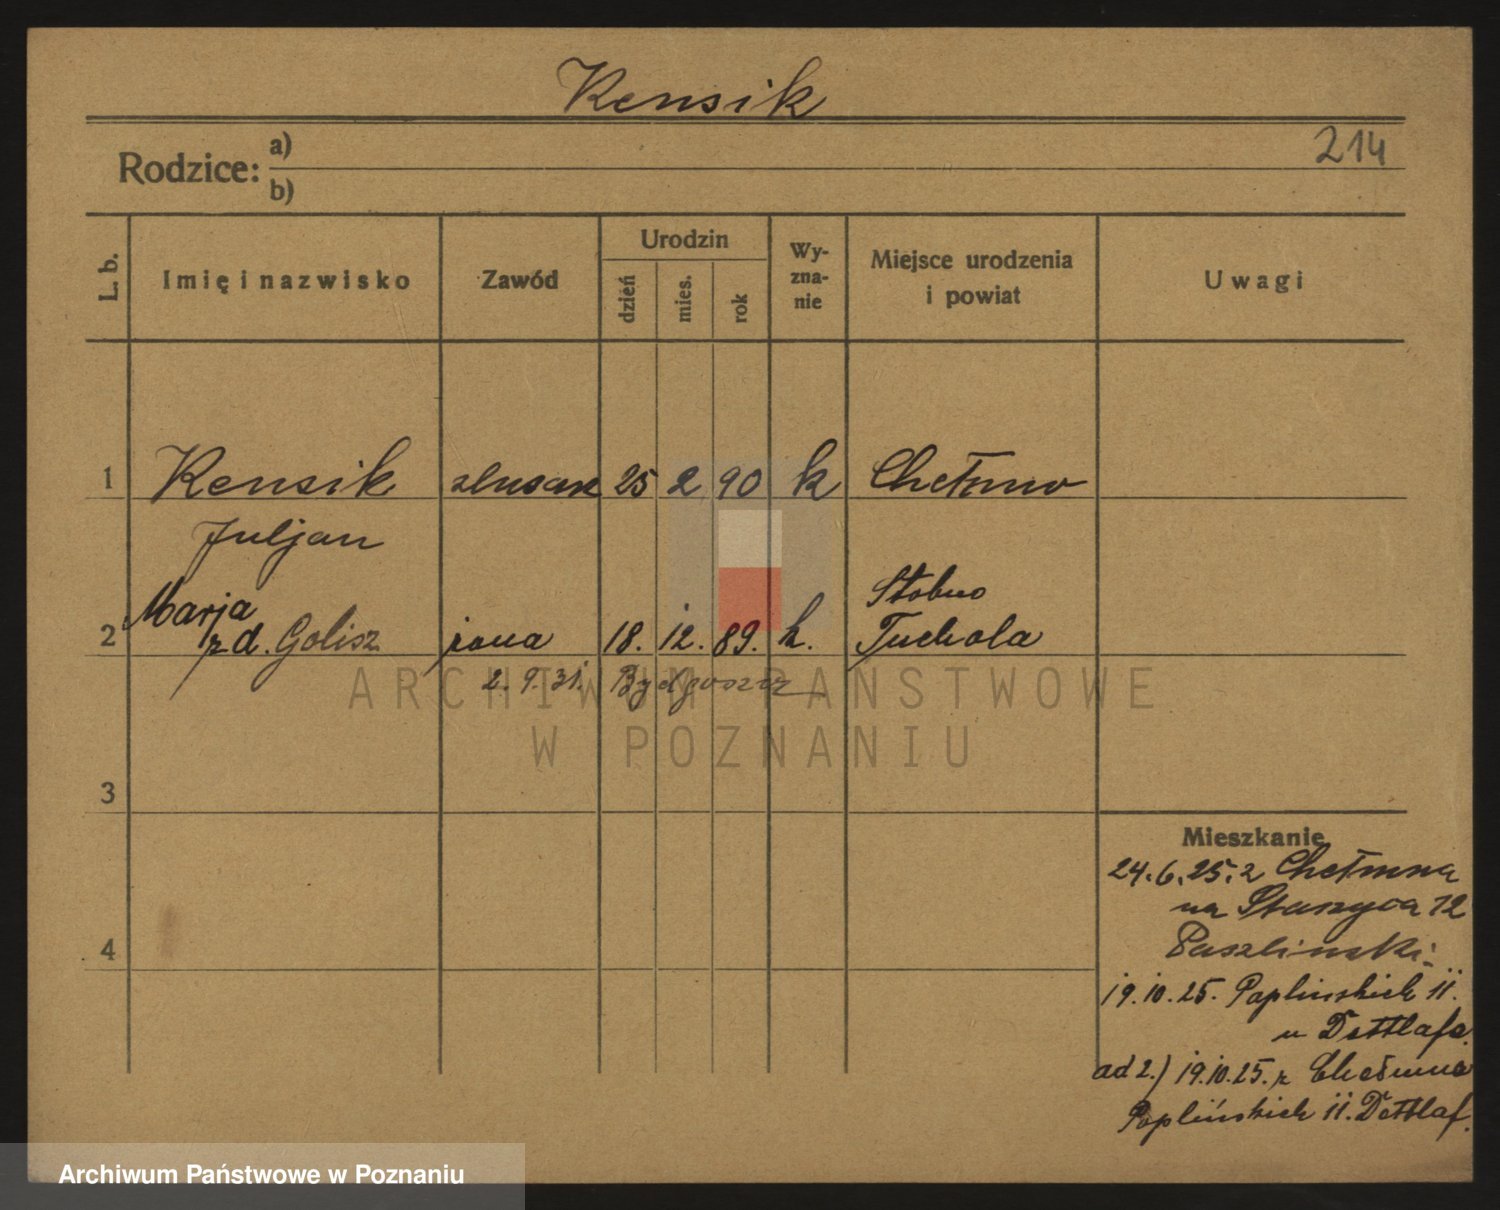 Kensik
214
Rodzice: a)
b)
L. b.
Imię i nazwisko
Zawód
Urodzin
dzień
mies.
rok
Wy-
zna-
nie
Miejsce urodzenia
i powiat
Uwagi
1 Kensik ślusarz 25 2 90 k Chełmno
Juljan
Marja Stobno
2 z d. Golisz żona 18. 12. 89. k. Tuchola
2. 9. 31. Bydgoszcz
ARCHIWUM PAŃSTWOWE
W POZNANIU
3
4
Mieszkanie
24.6.25. z Chełmna
na Staszyca 12
19.10.25. Paplińskich 11.
u Dettlafa.
ad 2.) 19.10.25. z Chełmna
Paplińskich 11. Dettlaf.
Archiwum Państwowe w Poznaniu